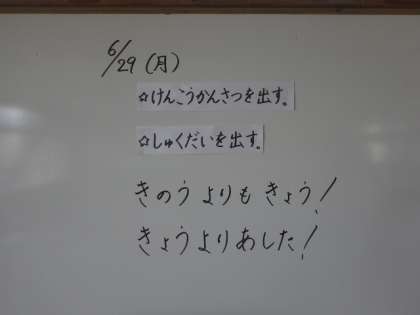 6/29(月)
☆けんこうかんさつを出す。
☆しゅくだいを出す。
きのうよりもきょう!
きょうよりあした!